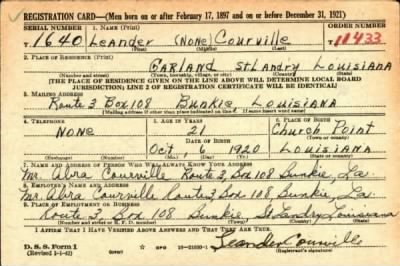 REGISTRATION CARD—(Men born on or after February 17, 1897 and on or before December 31, 1921)
SERIAL NUMBER 1. NAME (Print) ORDER NUMBER
T 1640 Leander (None) Courville T 11433
(First) (Middle) (Last)
2. PLACE OF RESIDENCE (Print)
GARLAND St Landry Louisiana
(Number and street) (Town, township, village, or city) (County) (State)
[THE PLACE OF RESIDENCE GIVEN ON THE LINE ABOVE WILL DETERMINE LOCAL BOARD
JURISDICTION; LINE 2 OF REGISTRATION CERTIFICATE WILL BE IDENTICAL]
3. MAILING ADDRESS
Route 3 Box 108 Bunkie Louisiana
4. TELEPHONE 5. AGE IN YEARS 6. PLACE OF BIRTH
None 21 Church Point
DATE OF BIRTH (Town or county)
Oct 6 1920 Louisiana
(Exchange) (Number) (Mo.) (Day) (Yr.) (State or country)
7. NAME AND ADDRESS OF PERSON WHO WILL ALWAYS KNOW YOUR ADDRESS
Mr. Abra Courville Route 3, Box 108 Bunkie, La.
8. EMPLOYER'S NAME AND ADDRESS
Mr. Abra Courville Route 3 Box 108 Bunkie, La.
9. PLACE OF EMPLOYMENT OR BUSINESS
Route 3, Box 108 Bunkie St Landry Louisiana
(Number and street or R. F. D. number) (Town) (County) (State)
I AFFIRM THAT I HAVE VERIFIED ABOVE ANSWERS AND THAT THEY ARE TRUE.
D. S. S. Form 1
(Revised 1-1-42) Leander Courville
(Registrant's signature)